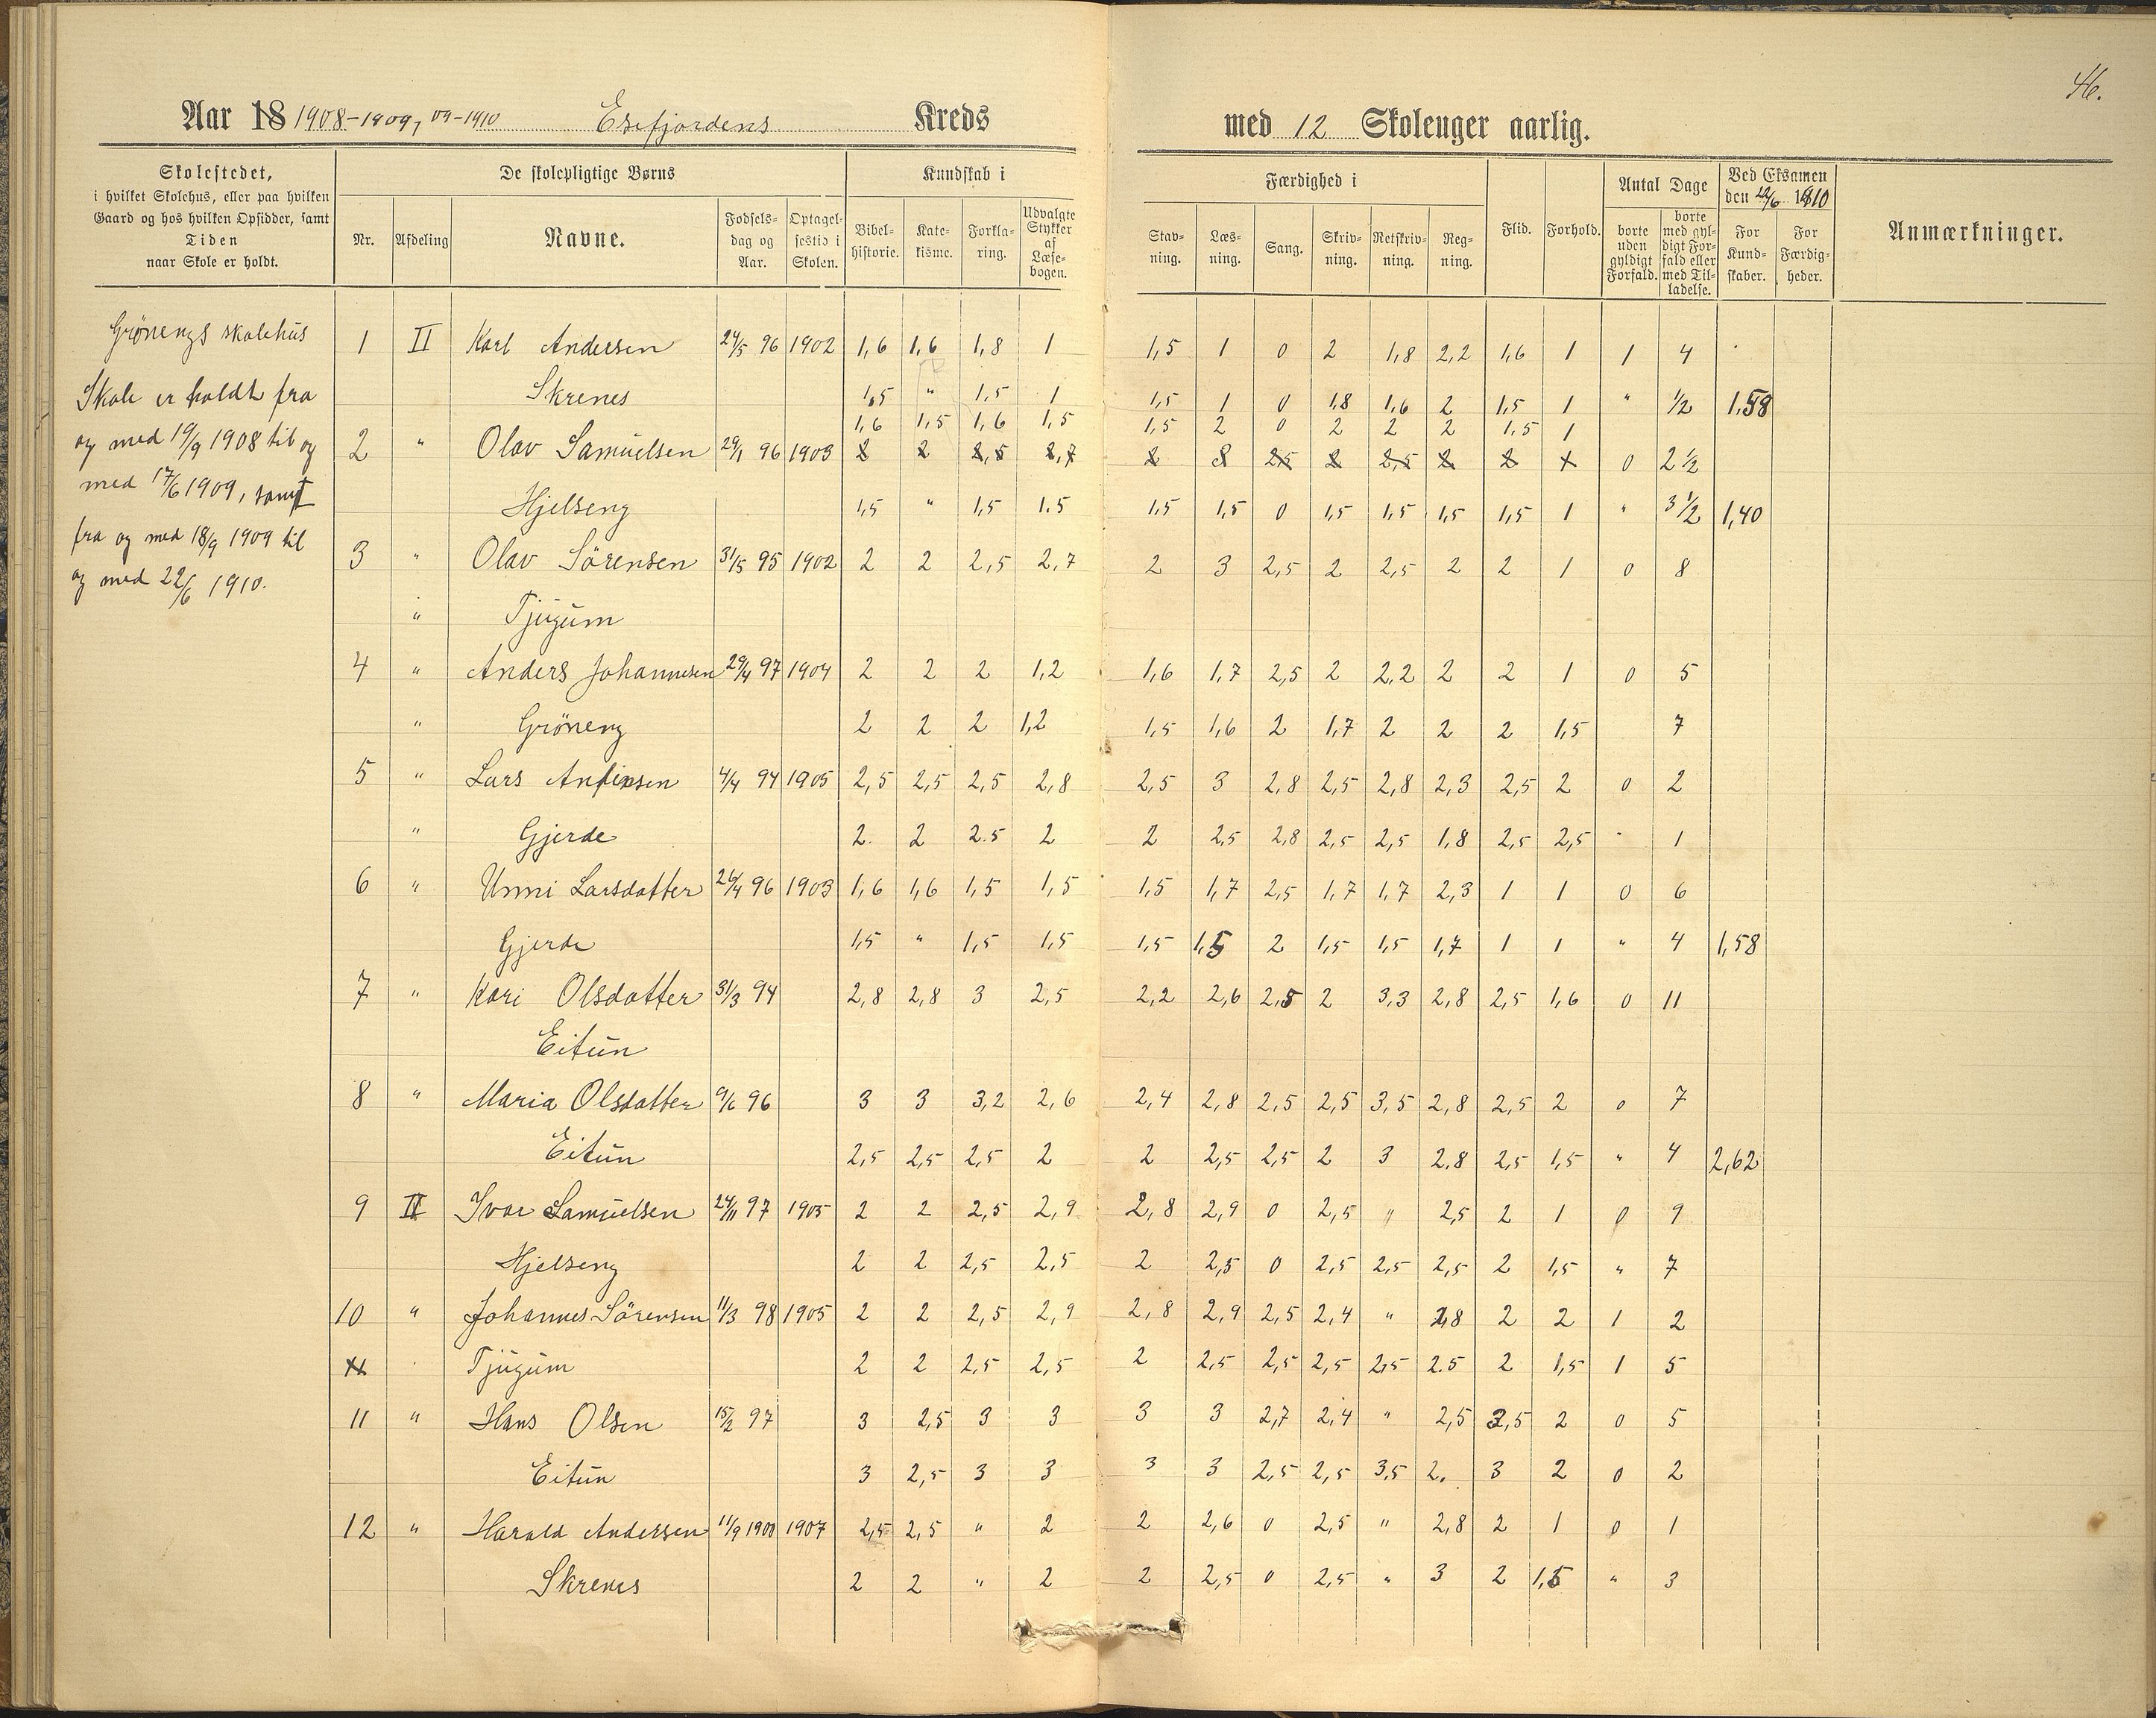 46.
Aar 18 1908-1909, 09-1910 Esefjordens Kreds med 12 Skoleuger aarlig.
Skolestedet, i hvilket Skolehus, eller paa hvilken Gaard og hos hvilken Opsidder, samt Tiden naar Skole er holdt.
De skolepligtige Børns
Nr. Afdeling Navne. Fødselsdag og Aar. Optagelsestid i Skolen.
Kundskab i
Bibelhistorie. Katekisme. Forklaring. Udvalgte Stykker af Læsebogen.
Færdighed i
Stavning. Læsning. Sang. Skrivning. Retskrivning. Regning.
Flid. Forhold.
Antal Dage
borte uden gyldigt Forfald. borte med gyldigt Forfald eller med Tilladelse.
Ved Eksamen den 22/6 1910
For Kundskaber. For Færdigheder.
Anmærkninger.
Grönengs skolehus
Skole er holdt fra
og med 19/9 1908 til og
med 17/6 1909, samt
fra og med 18/9 1909 til
og med 22/6 1910.
1 II Karl Andersen 24/5 96 1902 1,6 1,6 1,8 1 1,5 1 0 2 1,8 2,2 1,6 1 1 4
Skrenes 1,5 " 1,5 1 1,5 1 0 1,8 1,6 2 1,5 1 " 1/2 1,58
1,6 1,5 1,6 1,5 1,5 2 0 2 2 2 1,5 1
2 " Olav Samuelsen 29/1 96 1903 2 2 2,5 2,7 2 3 2,5 2 2,5 2 2 1 0 2 1/2
Hjelseng 1,5 " 1,5 1.5 1,5 1,5 0 1,5 1,5 1,5 1,5 1 " 3 1/2 1,40
3 " Olav Sörensen 31/5 95 1902 2 2 2,5 2,7 2 3 2,5 2 2,5 2 2 1 0 8
" Tjugum
4 " Anders Johannesen 29/4 97 1904 2 2 2 1,2 1,6 1,7 2,5 2 2,2 2 2 1 0 5
" Gröneng 2 2 2 1,2 1,5 1,6 2 1,7 2 2 2 1,5 7
5 " Lars Anfinsen 4/4 94 1905 2,5 2,5 2,5 2,8 2,5 3 2,8 2,5 2,8 2,3 2,5 2 0 2
" Gjerde 2. 2 2.5 2 2 2,5 2,8 2,5 2,5 1,8 2,5 2,5 1
6 " Unni Larsdatter 26/4 96 1903 1,6 1,6 1,5 1,5 1,5 1,7 2,5 1,7 1,7 2,3 1 1 0 6
Gjerde 1,5 " 1,5 1,5 1,5 1,5 2 1,5 1,5 1,7 1 1 " 4 1,58
7 " Kari Olsdatter 31/3 94 2,8 2,8 3 2,5 2,2 2,6 2,5 2 3,3 2,8 2,5 1,6 0 11
Eitun
8 " Maria Olsdatter 9/6 96 3 3 3,2 2,6 2,4 2,8 2,5 2,5 3,5 2,8 2,5 2 0 7
Eitun 2,5 2,5 2,5 2 2 2,5 2,5 2 3 2,8 2,5 1,5 " 4 2,62
9 II Ivar Samuelsen 24/11 97 1905 2 2 2,5 2,9 2,8 2,9 0 2,5 " 2,5 2 1 0 9
Hjelseng 2 2 2,5 2,5 2 2,5 0 2,5 2,5 2,5 2 1,5 " 7
10 " Johannes Sörensen 11/3 98 1905 2 2 2,5 2,9 2,8 2,9 2,5 2,4 " 2,8 2 2 1 2
11 Tjugum 2 2 2,5 2,5 2 2,5 2,5 2,5 2,5 2.5 2 1,5 1 5
11 " Hans Olsen 15/2 97 3 2,5 3 3 3 3 2,7 2,4 " 2,5 2,5 2 0 5
Eitun 3 2,5 3 3 3 3 2,5 2,5 3,5 2. 3 2 0 2
12 " Harald Andersen 11/9 1900 1907 2,5 2,5 " 2 2 2,6 0 2,5 " 2,8 2 1 0 1
Skrenes 2 2 " 2 2 2,5 0 2,5 " 3 2 1,5 " 3